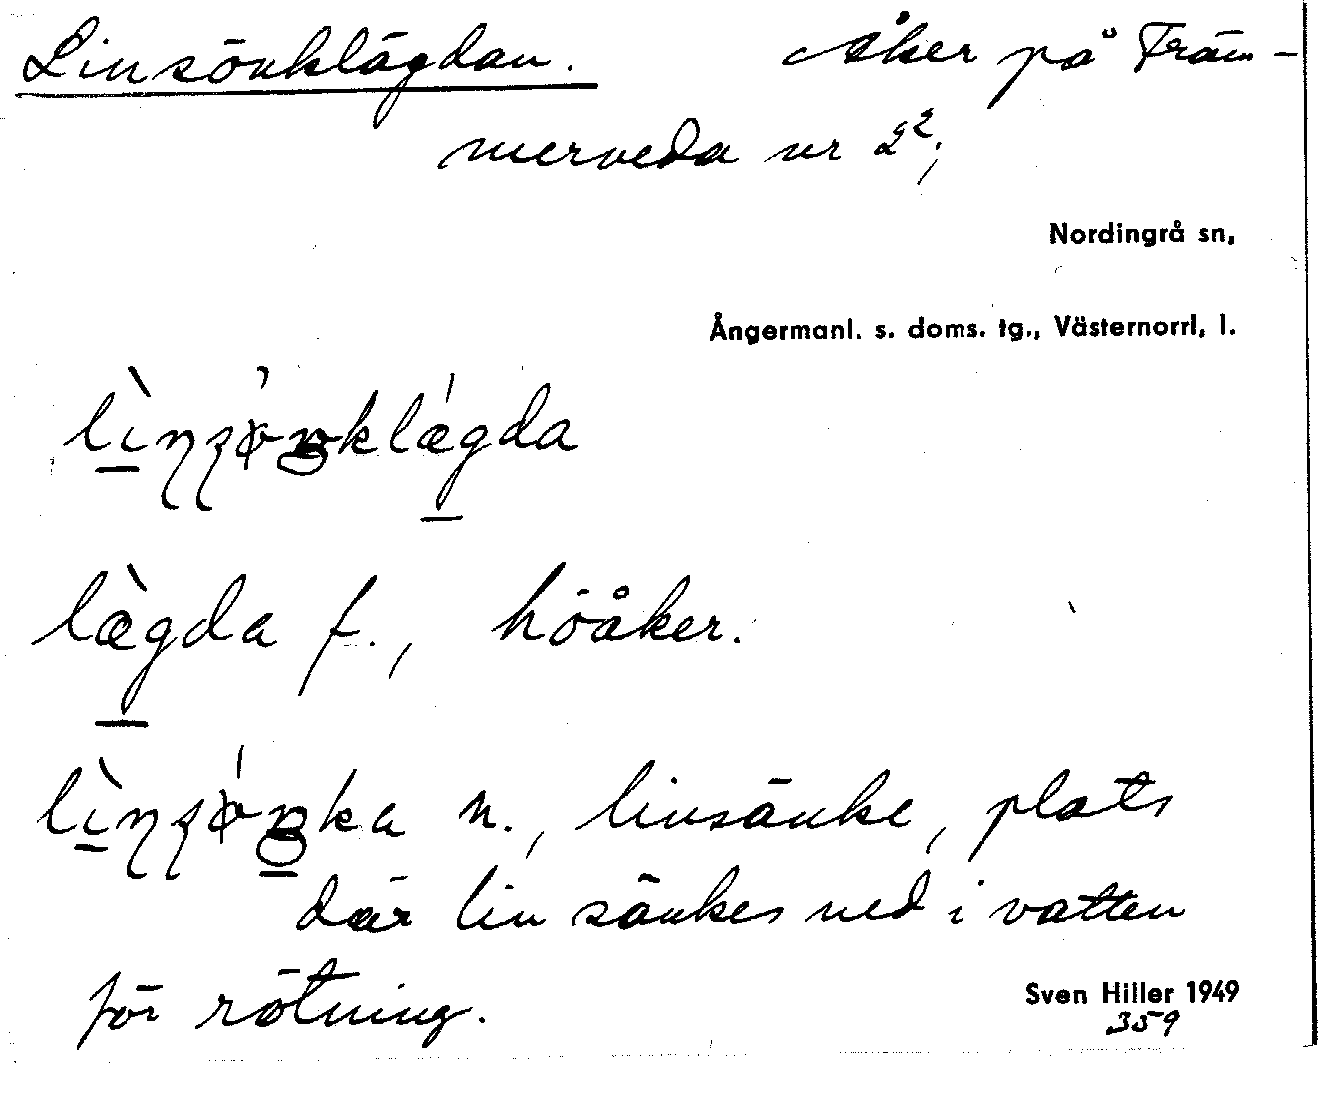 Linsönklägdan. Åker på Träm-
merveda nr 2²;
Nordingrå sn,
Ångermanl. s. doms. tg., Västernorrl. l.
lägda f., höåker.
n., linsänke, plats
där lin sänkes ned i vatten
för rötning.
Sven Hiller 1949
359